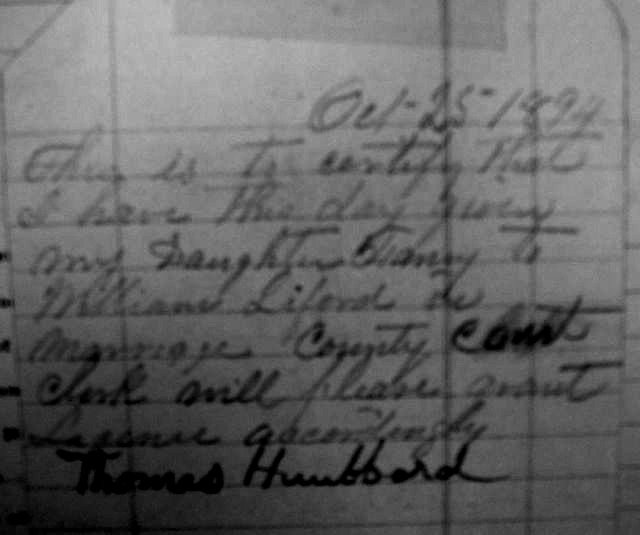 Oct-25-1894
This is to certify that
I have this day given
my Daughter to
William Liford in
marriage County Court
clerk will please grant
Lisence accordingly
Thomas Hubbard